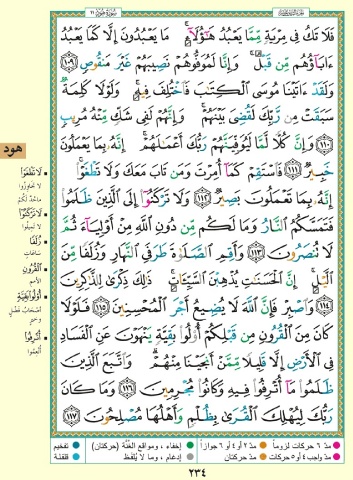 سورة هود ١١
فَلَا تَكُ فِي مِرْيَةٍ مِّمَّا يَعْبُدُ هَٰٓؤُلَآءِ ۚ مَا يَعْبُدُونَ إِلَّا كَمَا يَعْبُدُ
ءَابَآؤُهُم مِّن قَبْلُ ۚ وَإِنَّا لَمُوَفُّوهُمْ نَصِيبَهُمْ غَيْرَ مَنقُوصٍ ١٠٩
وَلَقَدْ ءَاتَيْنَا مُوسَى ٱلْكِتَٰبَ فَٱخْتُلِفَ فِيهِ ۚ وَلَوْلَا كَلِمَةٌ
سَبَقَتْ مِن رَّبِّكَ لَقُضِيَ بَيْنَهُمْ ۚ وَإِنَّهُمْ لَفِي شَكٍّ مِّنْهُ مُرِيبٍ
١١٠ وَإِنَّ كُلًّا لَّمَّا لَيُوَفِّيَنَّهُمْ رَبُّكَ أَعْمَٰلَهُمْ ۚ إِنَّهُۥ بِمَا يَعْمَلُونَ
خَبِيرٌ ١١١ فَٱسْتَقِمْ كَمَآ أُمِرْتَ وَمَن تَابَ مَعَكَ وَلَا تَطْغَوْا۟ ۚ
إِنَّهُۥ بِمَا تَعْمَلُونَ بَصِيرٌ ١١٢ وَلَا تَرْكَنُوٓا۟ إِلَى ٱلَّذِينَ ظَلَمُوا۟
فَتَمَسَّكُمُ ٱلنَّارُ وَمَا لَكُم مِّن دُونِ ٱللَّهِ مِنْ أَوْلِيَآءَ ثُمَّ
لَا تُنصَرُونَ ١١٣ وَأَقِمِ ٱلصَّلَوٰةَ طَرَفَيِ ٱلنَّهَارِ وَزُلَفًا مِّنَ
ٱلَّيْلِ ۚ إِنَّ ٱلْحَسَنَٰتِ يُذْهِبْنَ ٱلسَّيِّـَٔاتِ ۚ ذَٰلِكَ ذِكْرَىٰ لِلذَّٰكِرِينَ
١١٤ وَٱصْبِرْ فَإِنَّ ٱللَّهَ لَا يُضِيعُ أَجْرَ ٱلْمُحْسِنِينَ ١١٥ فَلَوْلَا
كَانَ مِنَ ٱلْقُرُونِ مِن قَبْلِكُمْ أُو۟لُوا۟ بَقِيَّةٍ يَنْهَوْنَ عَنِ ٱلْفَسَادِ
فِي ٱلْأَرْضِ إِلَّا قَلِيلًا مِّمَّنْ أَنجَيْنَا مِنْهُمْ ۗ وَٱتَّبَعَ ٱلَّذِينَ
ظَلَمُوا۟ مَآ أُتْرِفُوا۟ فِيهِ وَكَانُوا۟ مُجْرِمِينَ ١١٦ وَمَا كَانَ
رَبُّكَ لِيُهْلِكَ ٱلْقُرَىٰ بِظُلْمٍ وَأَهْلُهَا مُصْلِحُونَ ١١٧
هود
لَا تَطْغَوْا
لَا تَرْكَنُوا
زُلَفًا
ساعات
الْقُرُونِ
الأمم
أُولُوا بَقِيَّةٍ
أُتْرِفُوا
مدّ ٦ حركات لزوماً
مدّ ٢ أو ٤ أو ٦ جوازاً
إخفاء، ومواقع الغُنَّة (حركتان)
تفخيم
مدّ واجب ٤ أو ٥ حركات
مدّ حركتان
إدغام، وما لا يُلفظ
قلقلة
٢٣٤